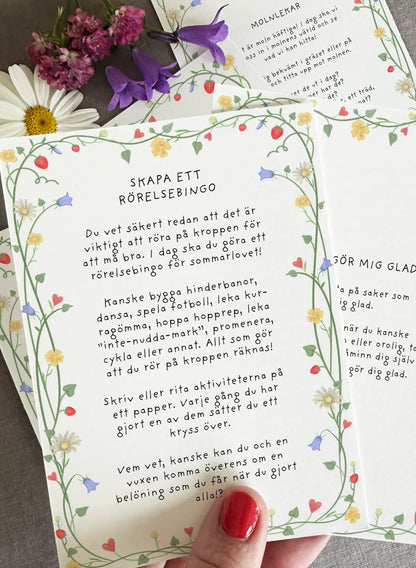 SKAPA ETT
RÖRELSEBINGO
Du vet säkert redan att det är
viktigt att röra på kroppen för
att må bra. I dag ska du göra ett
rörelsebingo för sommarlovet!
Kanske bygga hinderbanor,
dansa, spela fotboll, leka kur-
ragömma, hoppa hopprep, leka
"inte-nudda-mark", promenera,
cykla eller annat. Allt som gör
att du rör på kroppen räknas!
Skriv eller rita aktiviteterna på
ett papper. Varje gång du har
gjort en av dem sätter du ett
kryss över.
Vem vet, kanske kan du och en
vuxen komma överens om en
belöning som du får när du gjort
alla!?
MOLNLEKAR
är moln häftiga! I dag ska vi
in i molnens värld och se
vad vi kan hitta!
bekvämt i gräset eller på
och titta upp mot molnen.
er de ut i dag?
har de?
ett träd,
GÖR MIG GLAD
a på saker som
ig glad.
när du kanske
eller orolig,
åminn dig själv
gör dig glad.